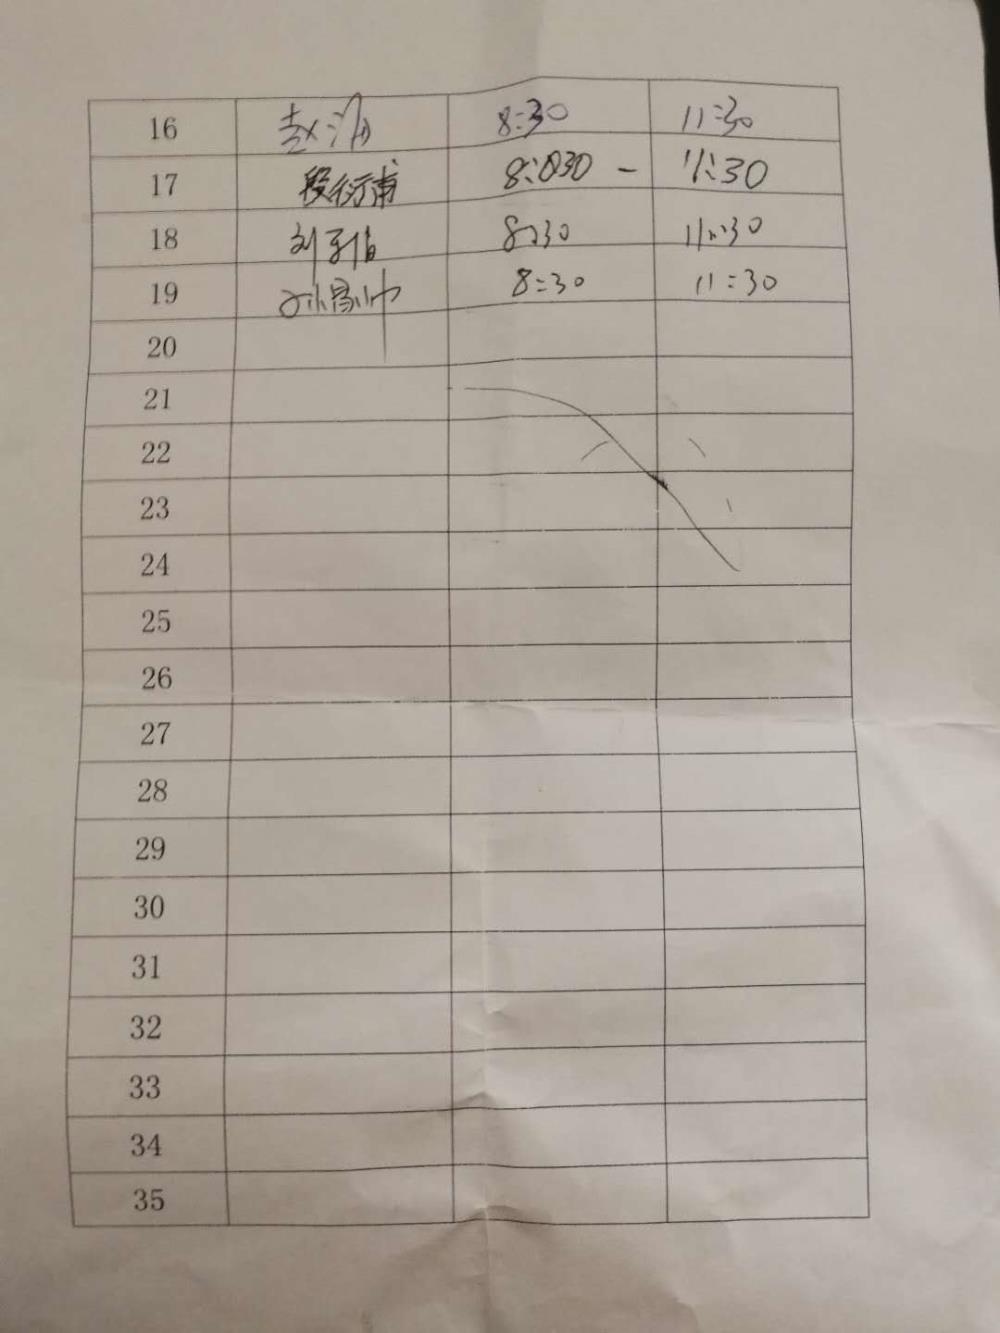 16 赵海 8:30 11:30
17 段衍甫 8:030 - 11:30
18 刘 8:30 11:30
19 孙易帅 8:30 11:30
20
21
22
23
24
25
26
27
28
29
30
31
32
33
34
35